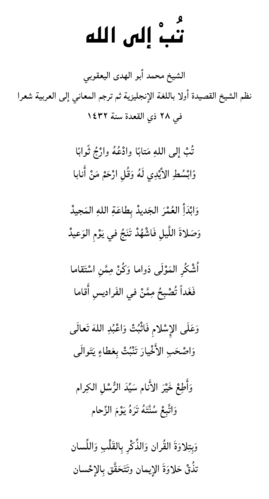 تُبْ إلى الله
الشيخ محمد أبو الهدى اليعقوبي
نظم الشيخ القصيدة أولا باللغة الإنجليزية ثم ترجم المعاني إلى العربية شعرا
في ٢٨ ذي القعدة سنة ١٤٣٢
تُبْ إلى اللهِ مَتابًا وادْعُهُ وارْجُ ثَوابًا
وَابْسُطِ الأيْدِي لَهُ وَقُلِ ارْحَمْ مَنْ أنابا
وَابْدَأِ العُمْرَ الجَديدْ بِطاعَةِ اللهِ المَجيدْ
وَصَلاةَ اللَّيلِ فَاشْهَدْ تَنْجُ في يَوْمِ الوَعيدْ
اُشْكُرِ المَوْلَى دَواما وَكُنْ مِمَّنِ اسْتَقاما
فَغَداً تُصْبِحُ مِمَّنْ في الفَراديسِ أَقاما
وَعَلَى الإِسْلامِ فَاثْبُتْ وَاعْبُدِ اللهَ تَعالَى
وَاصْحَبِ الأَخْيارَ تَنْبُتْ بِعَطاءٍ يَتَوالَى
وَأَطِعْ خَيْرَ الأَنامِ سَيِّدَ الرُّسْلِ الكِرام
وَاتَّبِعْ سُنَّتَهُ تَرَهُ يَوْمَ الزِّحام
وَبِتِلاوَةِ القُرانِ وَالذِّكْرِ بِالقَلْبِ وَاللِّسان
تَذُقْ حَلاوَةَ الإيمانِ وتَتَحَقَّق بِالإِحْسان